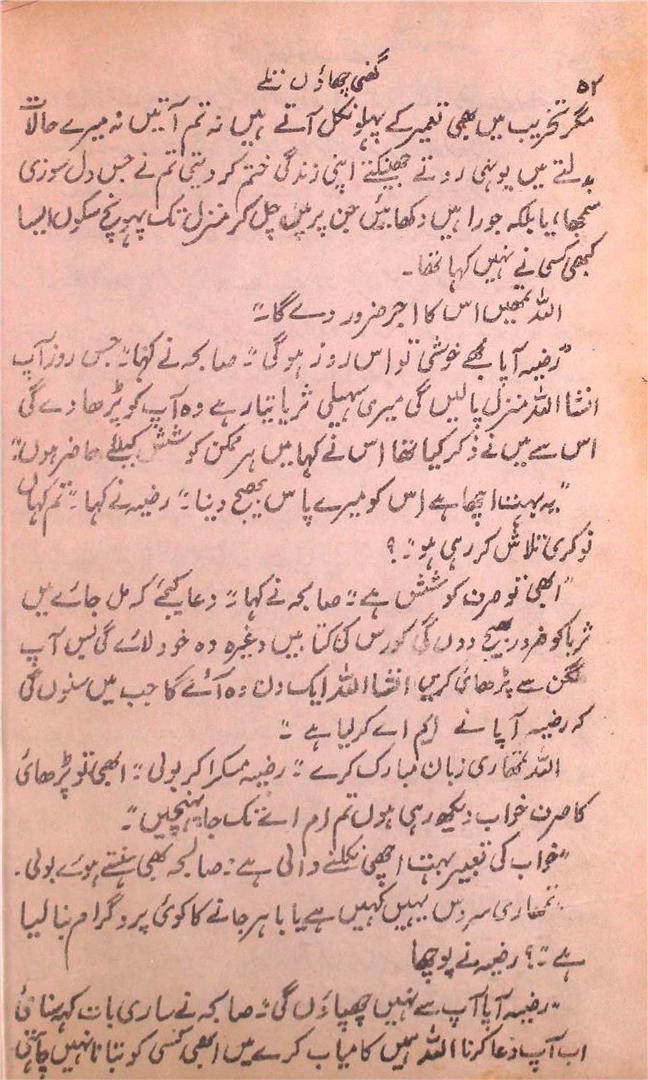 ۵۲
گھنی چھاؤں تلے
مگر تخریب میں بھی تعمیر کے پہلو نکل آتے ہیں نہ تم آتیں نہ میرے حالات
بدلتے میں یونہی روتے جھینکتے اپنی زندگی ختم کر دیتی تم نے جس دل سوزی
سمجھایا بلکہ جو راہیں دکھائیں جن پر میں چل کر منزل تک پہونچ سکوں ایسا
کبھی کسی نے نہیں کہا تھا۔
اللہ تمھیں اس کا اجر ضرور دے گا۔"
"رضیہ آپا مجھے خوشی تو اس روز ہو گی"۔ صابحہ نے کہا۔" جس روز آپ
انشا اللہ منزل پا لیں گی میری سہیلی ثریا تیار ہے وہ آپ کو پڑھا دے گی
اس سے میں نے ذکر کیا تھا اس نے کہا میں ہر ممکن کوشش کیلئے حاضر ہوں۔"
"یہ بہت اچھا ہے اس کو میرے پاس بھیج دینا۔" رضیہ نے کہا۔" تم کہاں
نوکری تلاش کر رہی ہو"۔؟
"ابھی تو صرف کوشش ہے"۔ صابحہ نے کہا۔" دعا کیجئے کہ مل جائے میں
ثریا کو ضرور بھیج دوں گی کورس کی کتابیں وغیرہ وہ خود لائے گی بس آپ
لگن سے پڑھائی کریں انشا اللہ ایک دن وہ آئے گا جب میں سنوں گی
کہ رضیہ آپا نے ایم اے کر لیا ہے۔"
اللہ تمھاری زبان مبارک کرے"۔ رضیہ مسکرا کر بولی"۔ ابھی تو پڑھائی
کا صرف خواب دیکھ رہی ہوں تم ام اے تک جا پہنچیں"۔
"خواب کی تعبیر بہت اچھی نکلنے والی ہے۔ صالحہ بھی ہنستے ہوئے بولی۔
"تمھاری سروس یہیں کہیں ہے یا باہر جانے کا کوئی پروگرام بنا لیا
ہے"۔؟ رضیہ نے پوچھا
"رضیہ آپا آپ سے نہیں چھپاؤں گی"۔ صابحہ نے ساری بات کہہ سنائی
اب آپ دعا کرنا اللہ ہمیں کامیاب کرے میں ابھی کسی کو بتانا نہیں چاہتی